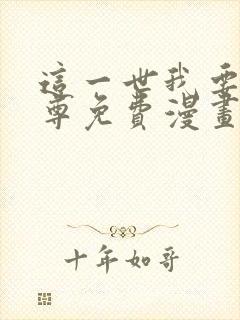 這一世我要
尊免費漫畫
十年如哥